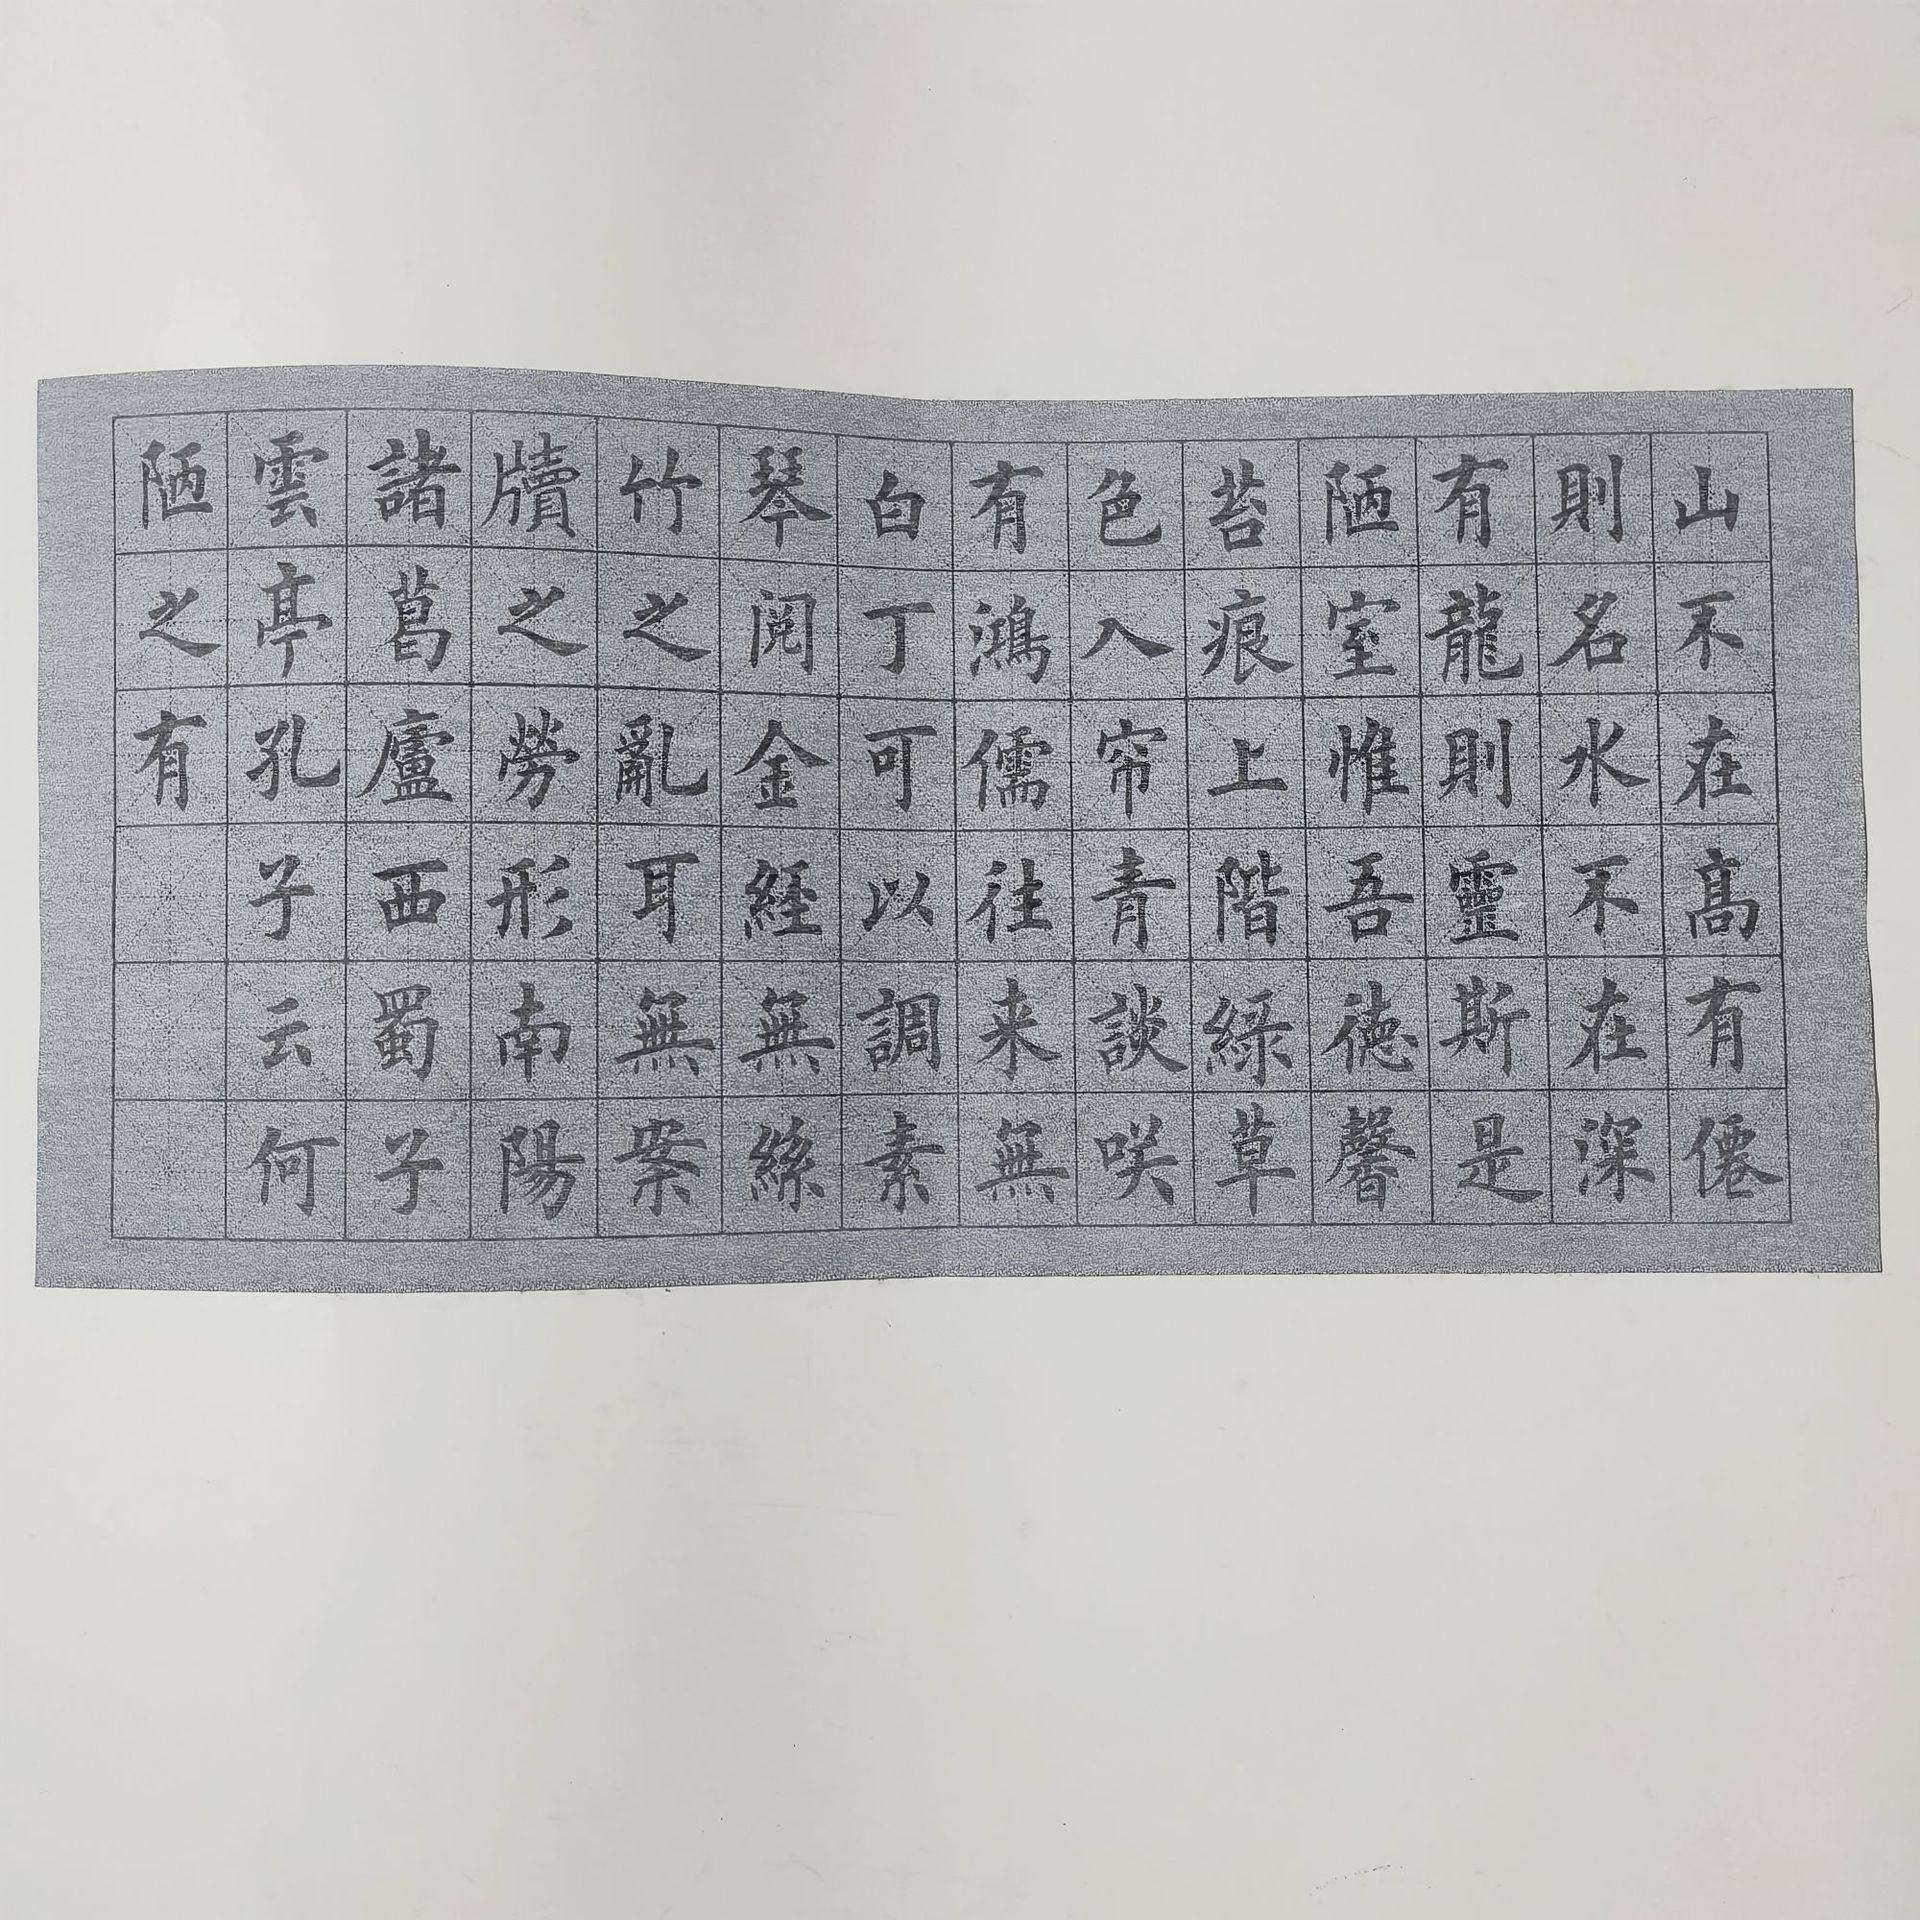 山不在高有僊
則名水不在深
有龍則靈斯是
陋室惟吾徳馨
苔痕上階緑草
色入帘青談咲
有鴻儒往来無
白丁可以調素
琴阅金経無絲
竹之亂耳無案
牘之勞形南陽
諸葛廬西蜀子
雲亭孔子云何
陋之有